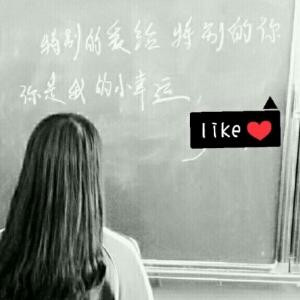 特别的爱给特别的你
你是我的小幸运
like